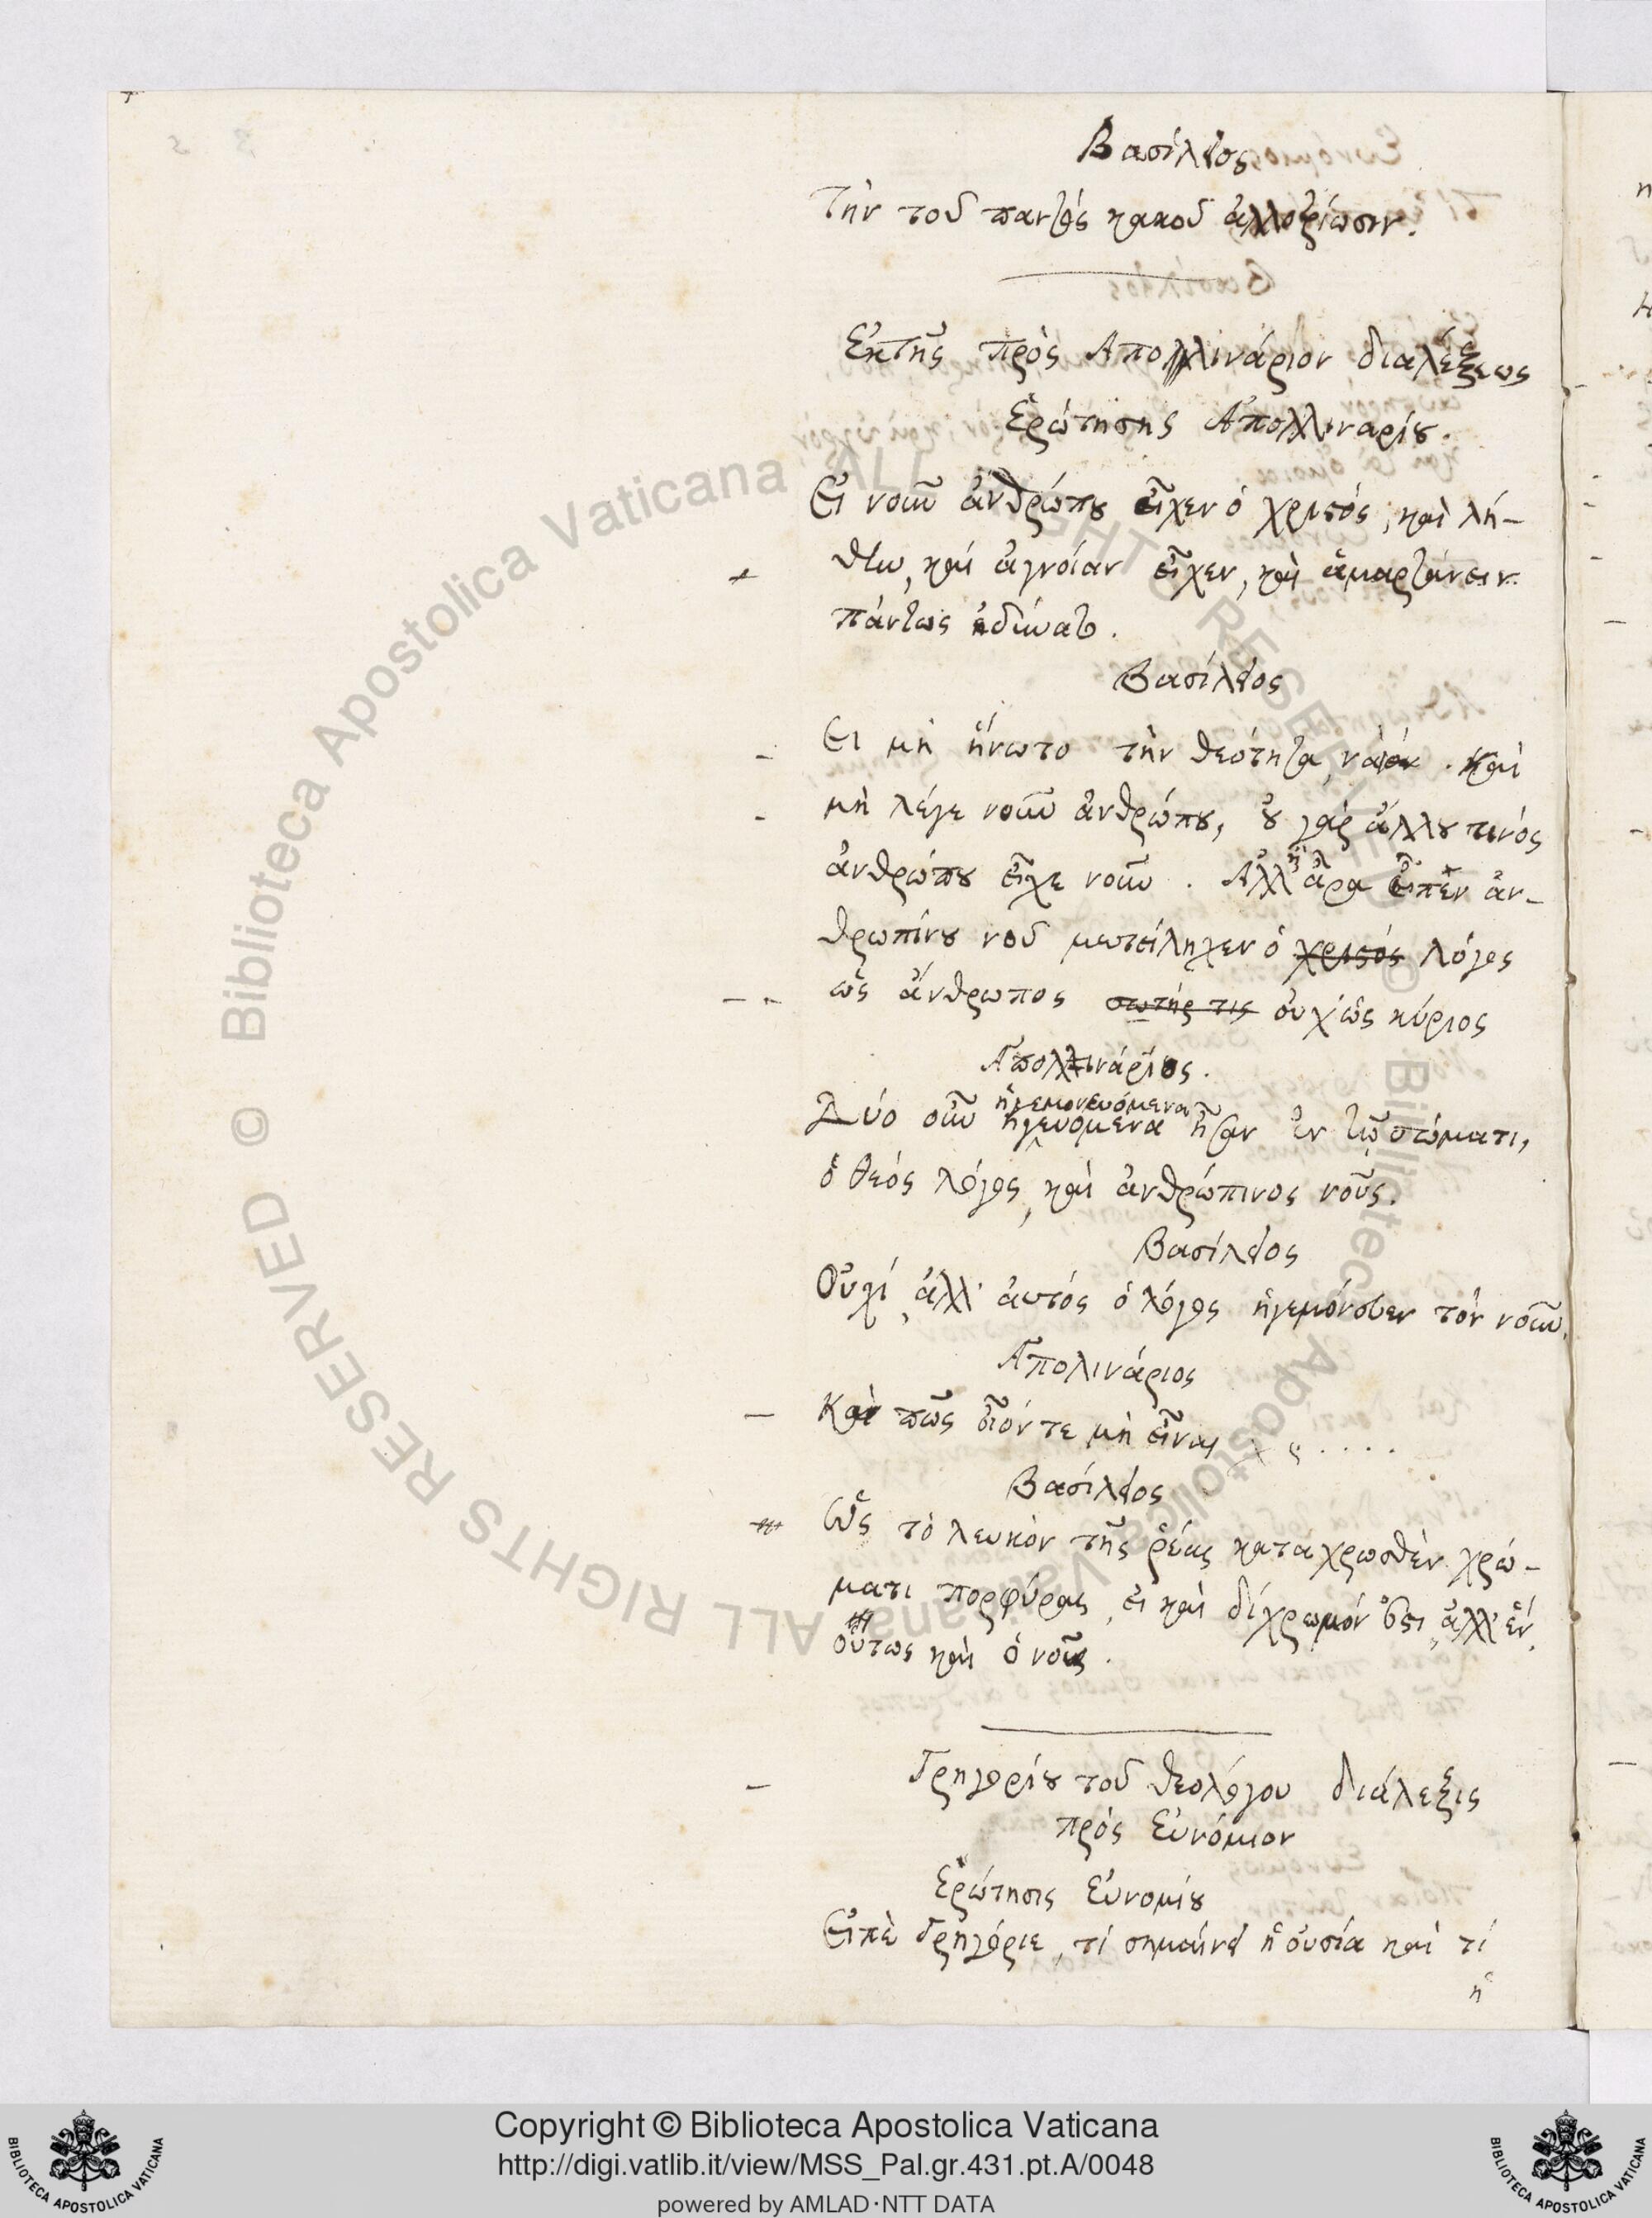 Βασίλειος
Τὴν τοῦ παντὸς κακοῦ ἀλλοτρίωσιν.
Ἐκ τῆς πρὸς Ἀπολλινάριον διαλέξεως
Ἐρώτησης Ἀπολλιναρίου.
Εἰ νοῦν ἀνθρώπου εἶχεν ὁ χριστός, καὶ λή-
θην, καὶ ἀγνοίαν εἶχεν, καὶ ἁμαρτάνειν
πάντως ἠδύνατο.
Βασίλειος
Εἰ μὴ ἥνωτο τὴν θεότητα, . καὶ
μὴ λέγε νοῦν ἀνθρώπου, οὐ γὰρ ἄλλου τινός
ἀνθρώπου εἶχε νοῦν. Ἀλλ' ἢ ἆρα εἶπεν ἀν-
θρωπίνου νοῦ μετείληχεν ὁ χριστός λόγος
ὡς ἄνθρωπος σωτήρ τις οὐχ ὡς κύριος
Ἀπολλινάριος.
ἡγεμονευόμενα
Δύο οὖν ἡγευόμενα ἦσαν ἐν τῷ στόματι,
ὁ θεός λόγος, καὶ ἀνθρώπινος νοῦς.
Βασίλειος
Οὐχί, ἀλλ' αὐτός ὁ λόγος ἡγεμόνευεν τὸν νοῦν.
Ἀπολινάριος
Καὶ πῶς οἷόν τε μὴ εἶναι . . . .
Βασίλειος
Ὡς τὸ λευκὸν τῆς ἐρέας καταχρωσθὲν χρώ-
ματι πορφύρας, εἰ καὶ δίχρωμόν ἐστι, ἀλλ' ἕν,
οὕτως καὶ ὁ νοῦς.
Γρηγορίου τοῦ θεολόγου διάλεξις
πρὸς Εὐνόμιον
Ἐρώτησις Εὐνομίου
Εἰπὲ Γρηγόριε, τί σημαίνει ἡ οὐσία καὶ τί
ἡ
Copyright © Biblioteca Apostolica Vaticana
http://digi.vatlib.it/view/MSS_Pal.gr.431.pt.A/0048
powered by AMLAD·NTT DATA
BIBLIOTECA APOSTOLICA VATICANA
BIBLIOTECA APOSTOLICA VATICANA
© Biblioteca Apostolica Vaticana ALL RIGHTS RESERVED
© Biblioteca Apostolica Vaticana ALL RIGHTS RESERVED